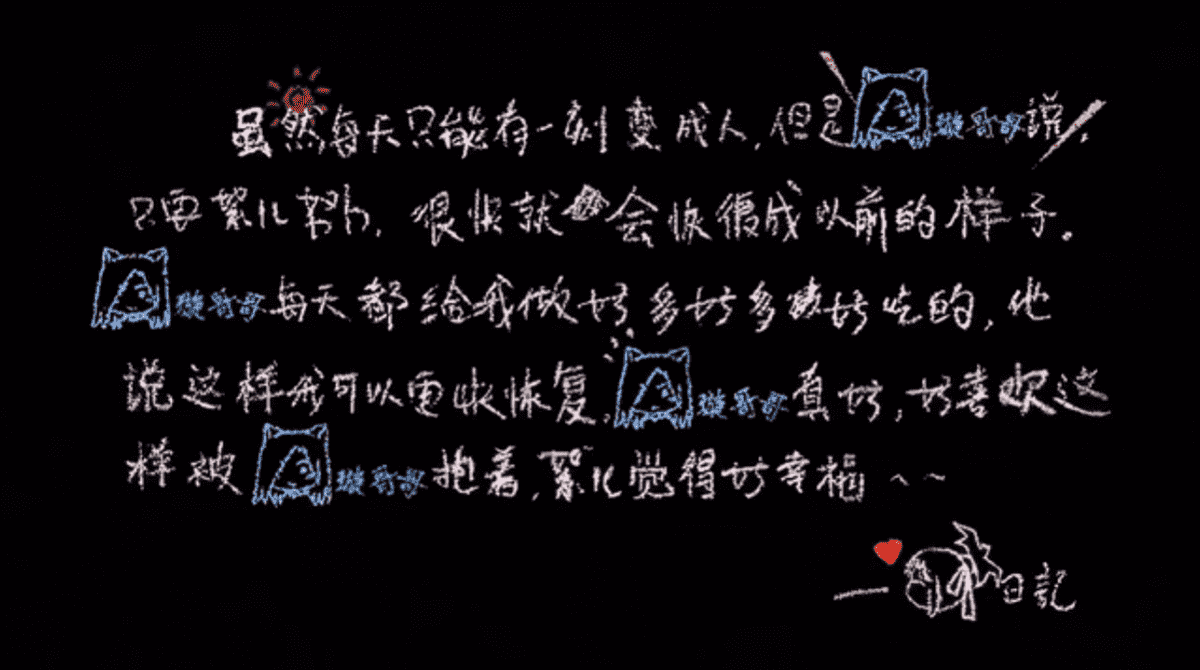 虽然每天只能有一刻变成人,但是璇哥哥说,
只要絮儿努力,很快就会恢復成以前的样子。
璇哥哥每天都给我做好多好多好吃的,他
说这样我可以更快恢复,璇哥哥真好,好喜欢这
样被璇哥哥抱着,絮儿觉得好幸福~~
—日記